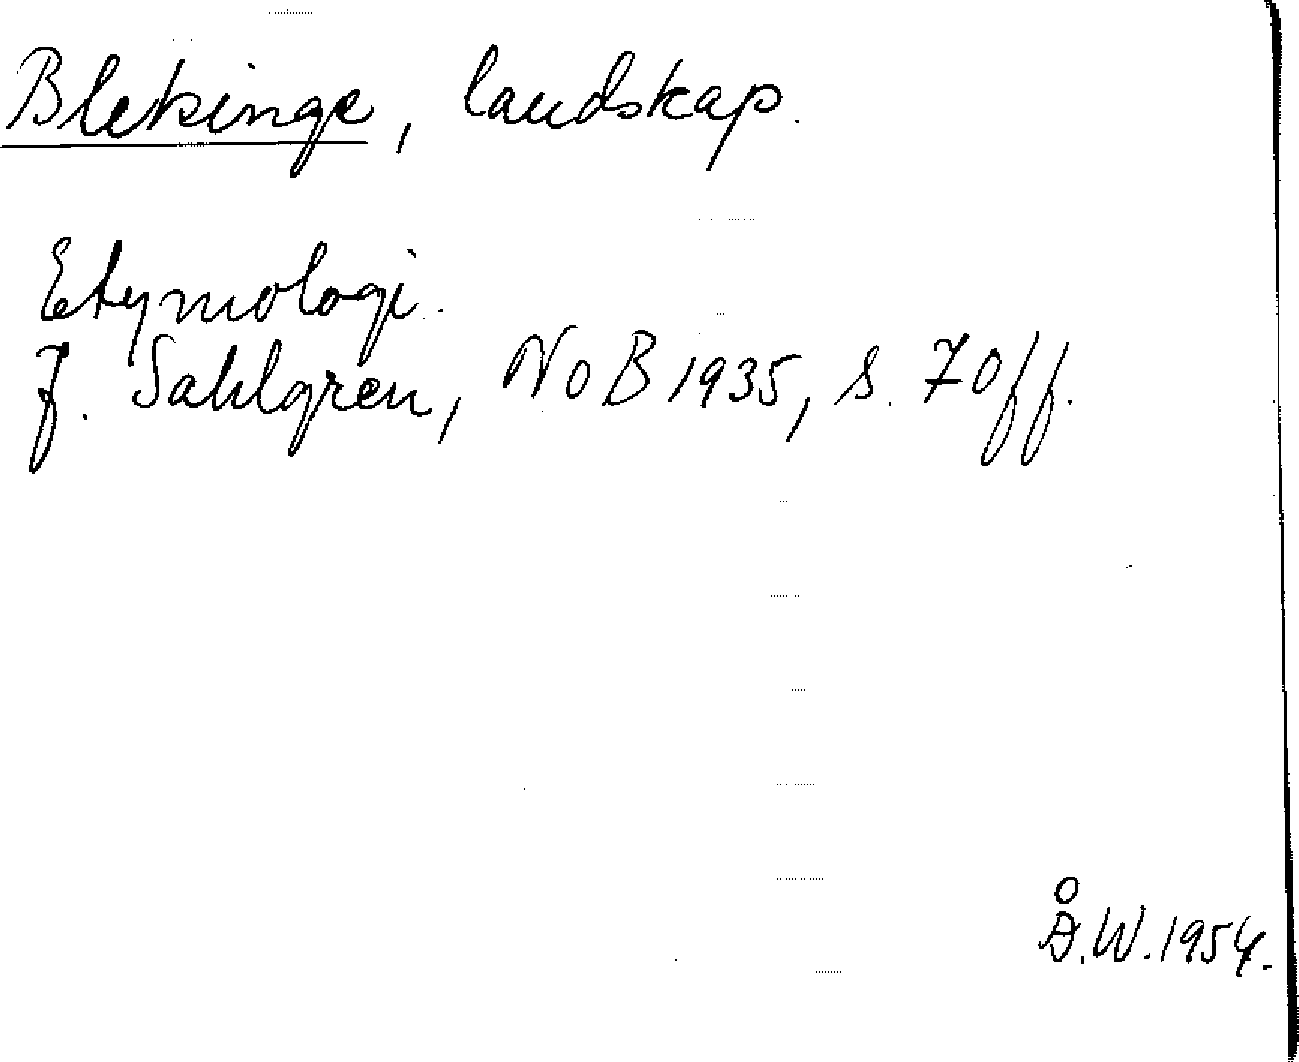 Blekinge, landskap.
Etymologi.
J. Sahlgren, NoB 1935, s. 70ff.
Å.W. 1954.